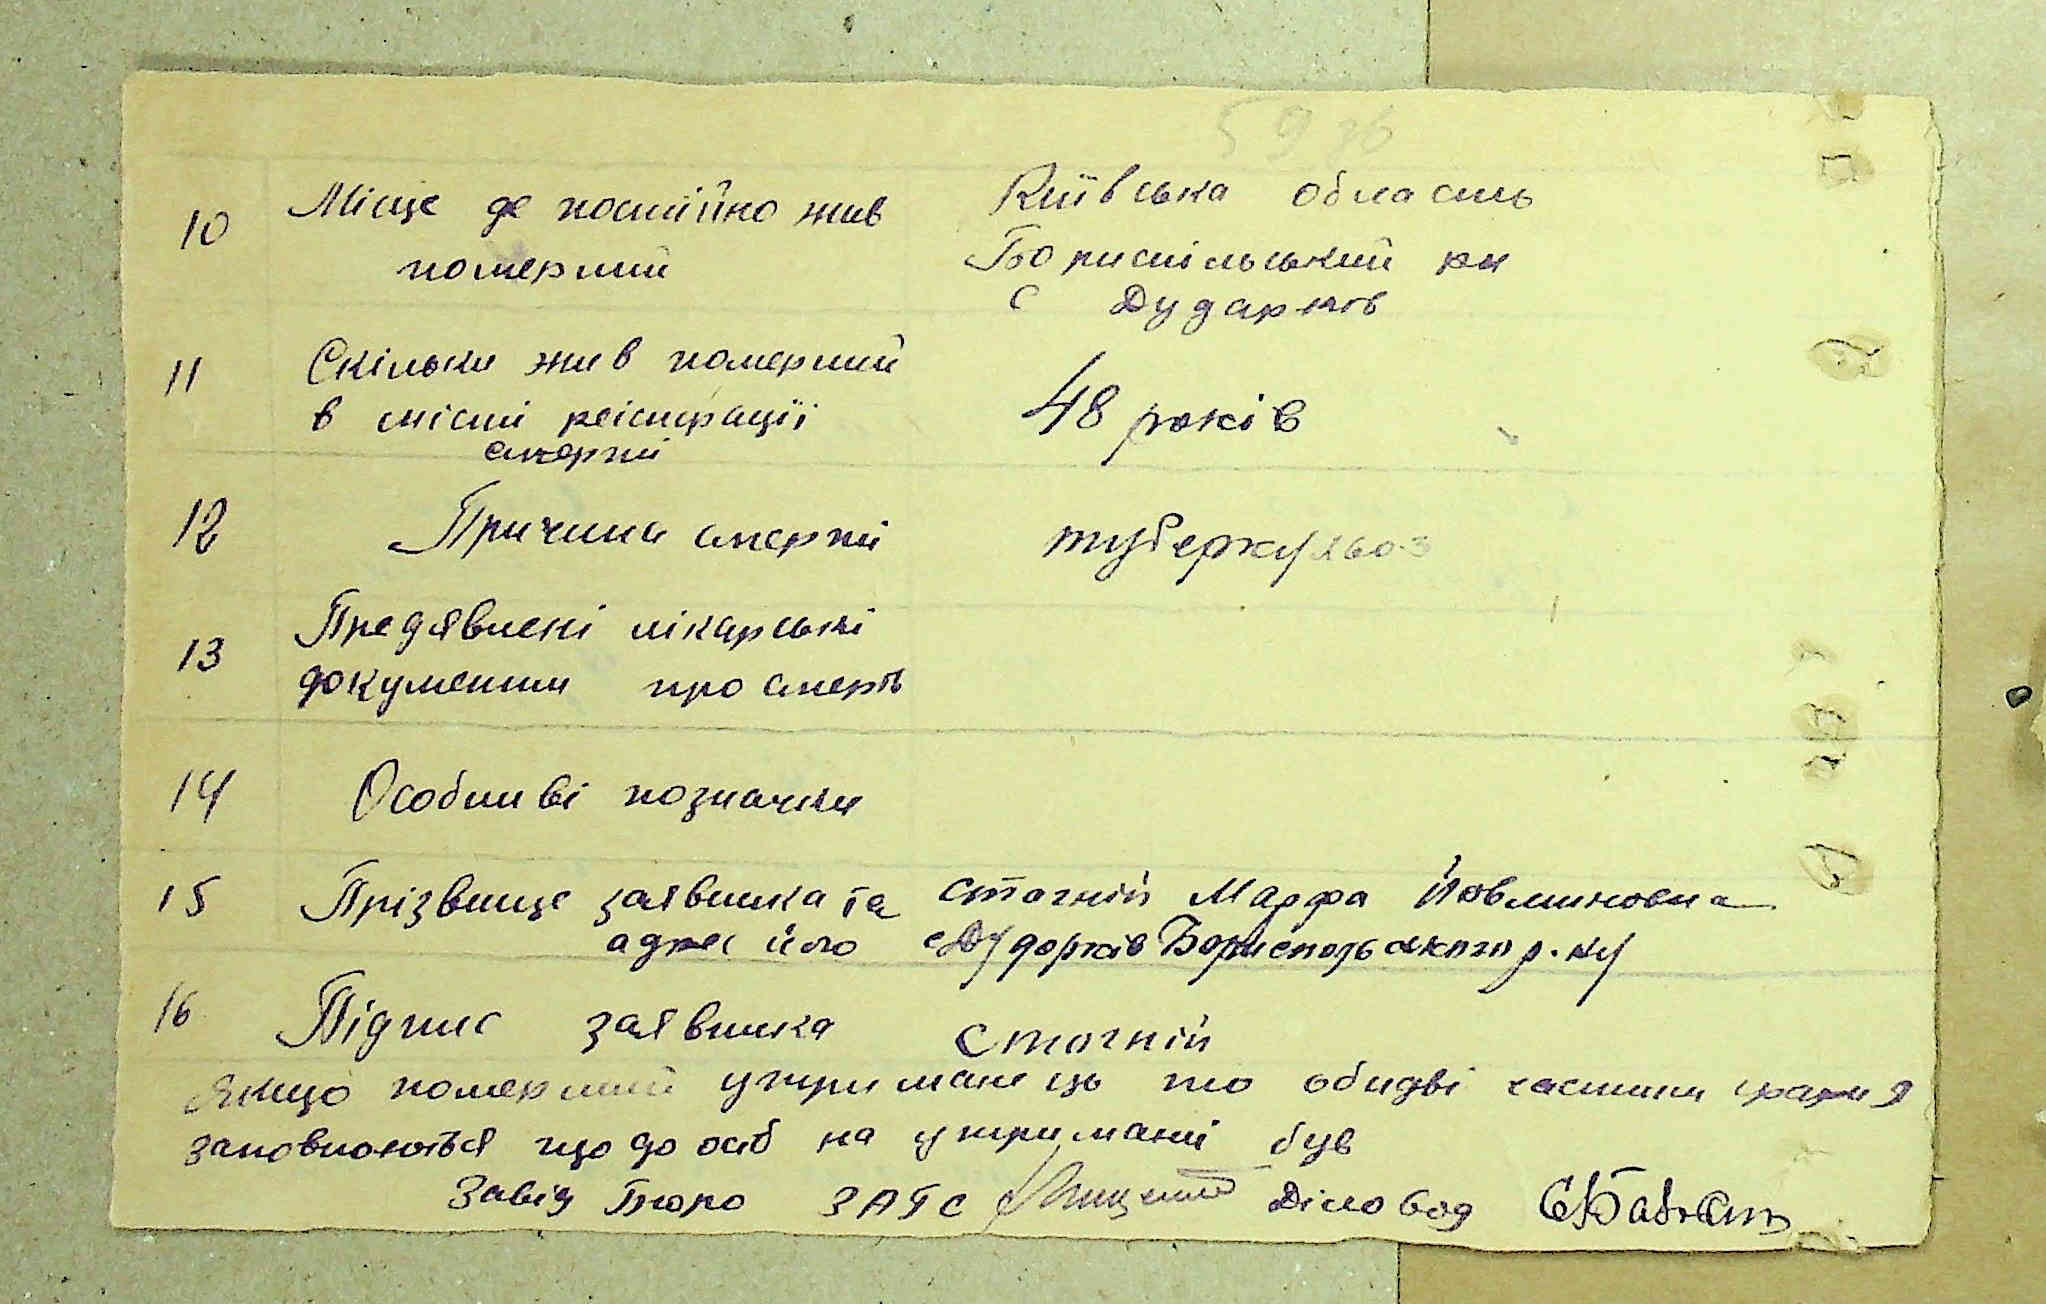 59 зв
10 Місце де постійно жив Київська область
померший Бориспільський рн
с Дударків
11 Скільки жив померший
в місті реістрації 48 років
смерті
12 Причина смерті туберкульоз
13 Предявлені лікарські
документи про смерть
14 Особливі позначки
15 Прізвище заявника та Стогній Марфа
адрес його с Дударків Бориспольського р.ну
16 Підпис заявника Стогній
Якщо померший утриманець то обидві частини
заповнюються що до осіб на утримані був
Завід Бюро ЗАГС Діловод